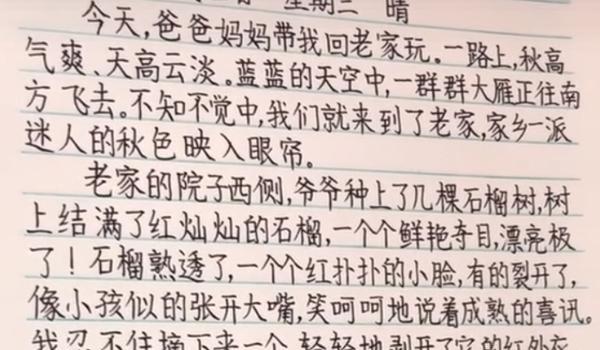 星期三 晴
今天,爸爸妈妈带我回老家玩。一路上,秋高
气爽、天高云淡。蓝蓝的天空中,一群群大雁正往南
方飞去。不知不觉中,我们就来到了老家,家乡一派
迷人的秋色映入眼帘。
老家的院子西侧,爷爷种上了几棵石榴树,树
上结满了红灿灿的石榴,一个个鲜艳夺目,漂亮极
了!石榴熟透了,一个个红扑扑的小脸,有的裂开了,
像小孩似的张开大嘴,笑呵呵地说着成熟的喜讯。
我忍不住摘下来一个,轻轻地剥开了它的红外衣